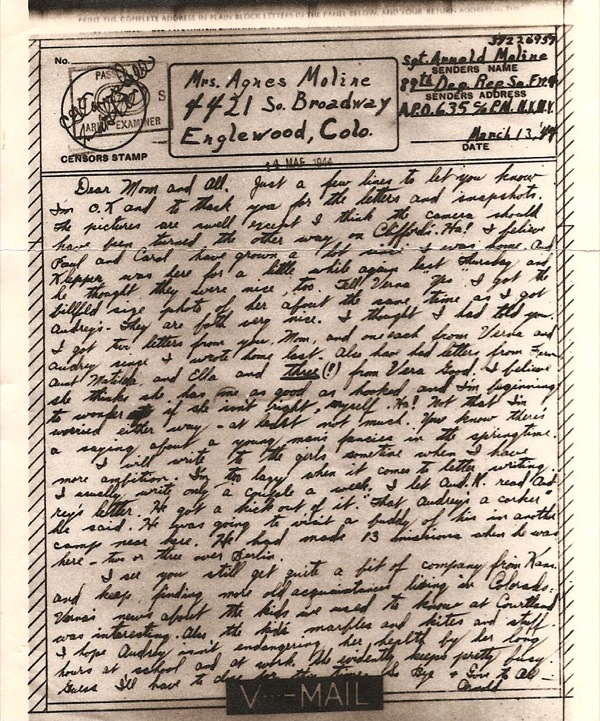 PRINT THE COMPLETE ADDRESS IN PLAIN BLOCK LETTERS IN THE PANEL BELOW, AND YOUR RETURN ADDRESS IN THE
37226959
No.
Sgt. Arnold Moline
SENDERS NAME
89th Dep. Rep. Sq.
SENDERS ADDRESS
A.P.O. 635 c/o P.M. N.Y. N.Y.
March 13, 44
DATE
Mrs. Agnes Moline
4421 So. Broadway
Englewood, Colo.
PAS
ARMY EXAMINER
CENSORS STAMP
MAR 1944
Dear Mom and All. Just a few lines to let you know
I'm O.K and to thank you for the letters and snapshots.
The pictures are swell except I think the camera should
have been turned the other way on Clifford. Ha! I believe
Paul and Carol have grown a lot since I was home. And
Klepper was here for a little while again last Thursday and
he thought they were nice, too. Tell Verna "Yes" I got the
billfold size photo of her about the same time as I got
Audrey's. They are both very nice. I thought I had told you.
I got two letters from you, Mom, and one each from Verna and
Audrey since I wrote home last. Also have had letters from Fern
Aunt Matilda and Ella and three (!) from Vera Good. I believe
she thinks she has me as good as hooked, and I'm beginning
to wonder if she isn't right, myself. Ha! Not that I'm
worried either way - at least not much. You know there's
a saying about a young man's fancies in the springtime.
I will write to the girls sometime when I have
more ambition. I'm too lazy when it comes to letter writing.
I usually write only a couple a week. I let And. K. read Aud-
rey's letter. He got a kick out of it. "That Audrey's a corker"
he said. He was going to visit a buddy of his in another
camp near here. He had made 13 missions when he was
here - two or three over Berlin.
I see you still get quite a bit of company from Kans.
and keep finding more old acquaintances living in Colorado.
Verna's news about the kids we used to know at Courtland
was interesting. Also the kids marbles and kites and stuff.
I hope Audrey isn't endangering her health by her long
hours at school and at work. She evidently keeps pretty busy.
Guess I'll have to close for this time. So Bye & Love to All -
Arnold
V···-MAIL